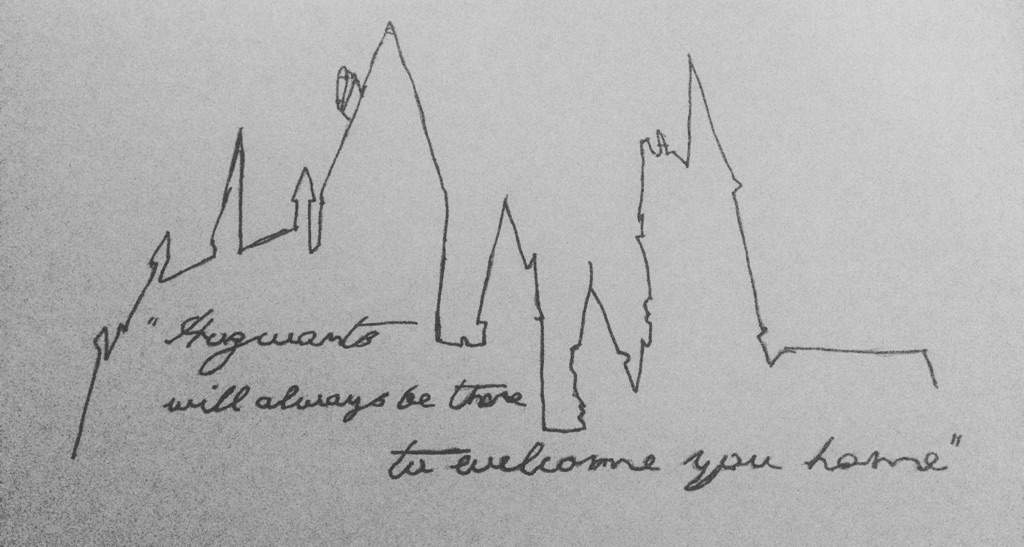 "Hogwarts
will always be there
to welcome you home"